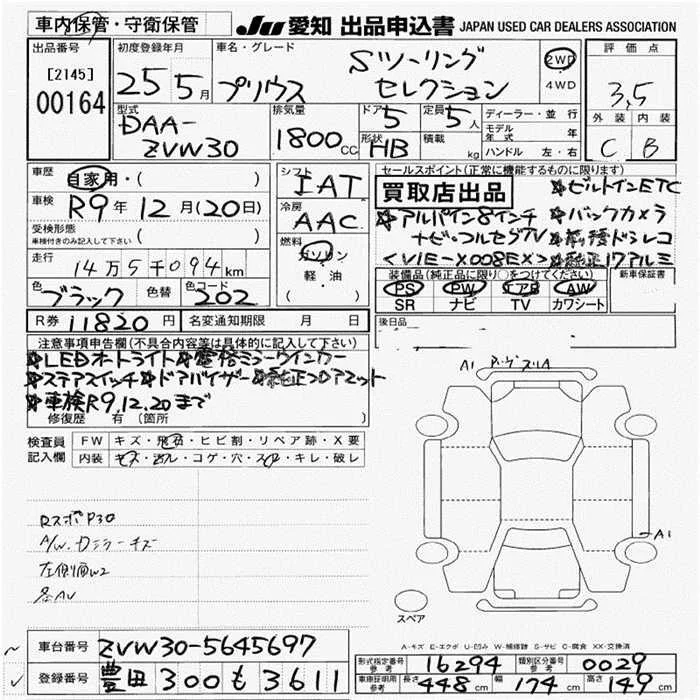 車内保管・守衛保管
JU 愛知 出品申込書 JAPAN USED CAR DEALERS ASSOCIATION
出品番号
[2145]
00164
初度登録年月
25 5月
車名・グレード
プリウス
Sツーリング
セレクション
2WD
4WD
評価点
3,5
外装 内装
C B
型式
DAA-
ZVW30
排気量
1800cc
ドア 5
定員 5人
形状 HB
積載 kg
ディーラー・並行
モデル年式 年
ハンドル 左・右
車歴
自家用・( )
車検
R9年12月(20日)
受検形態
車検付きのみ記入して下さい ( )
走行
14万5千094km
色
ブラック
色替
色コード
202
シフト
IAT
冷房
AAC
燃料
ガソリン
軽・油
( )
セールスポイント(正常に機能するものに限ります)
買取店出品
※ビルトインETC
※アルパイン8インチ
※バックカメラ
ナビ・フルセグTV
ドラレコ
<VIE-X008EX>
17アルミ
装備品(純正品に限り○をつけてください)
PS PW エアB AW
SR ナビ TV カワシート
新車保証書
後日品
R券 11820円
名変通知期限 月 日
注意事項申告欄(不具合内容等は具体的に記入して下さい)
※LEDオートライト※電格ミラーウインカー
※ステアスイッチ※ドアバイザー※純正フロアマット
※車検R9.12.20まで
修復歴 有(箇所
検査員
記入欄
FW キズ・飛石・ヒビ割・リペア跡・X要
内装 キズ・汚レ・コゲ・穴・スレ・キレ・破レ
RスポP30
A/W.Dミラーキズ
左側面W2
各AU
A1
A1
スペア
A-キズ E-エクボ U-凹み W-補修跡 S-サビ C-腐食 XX-交換済
車台番号 ZVW30-5645697
登録番号 豊田 300 も 3611
形式指定番号
参考
16294
類別区分番号
参考
0029
車庫証明用
参考
長さ 448cm
幅 174cm
高さ 149cm